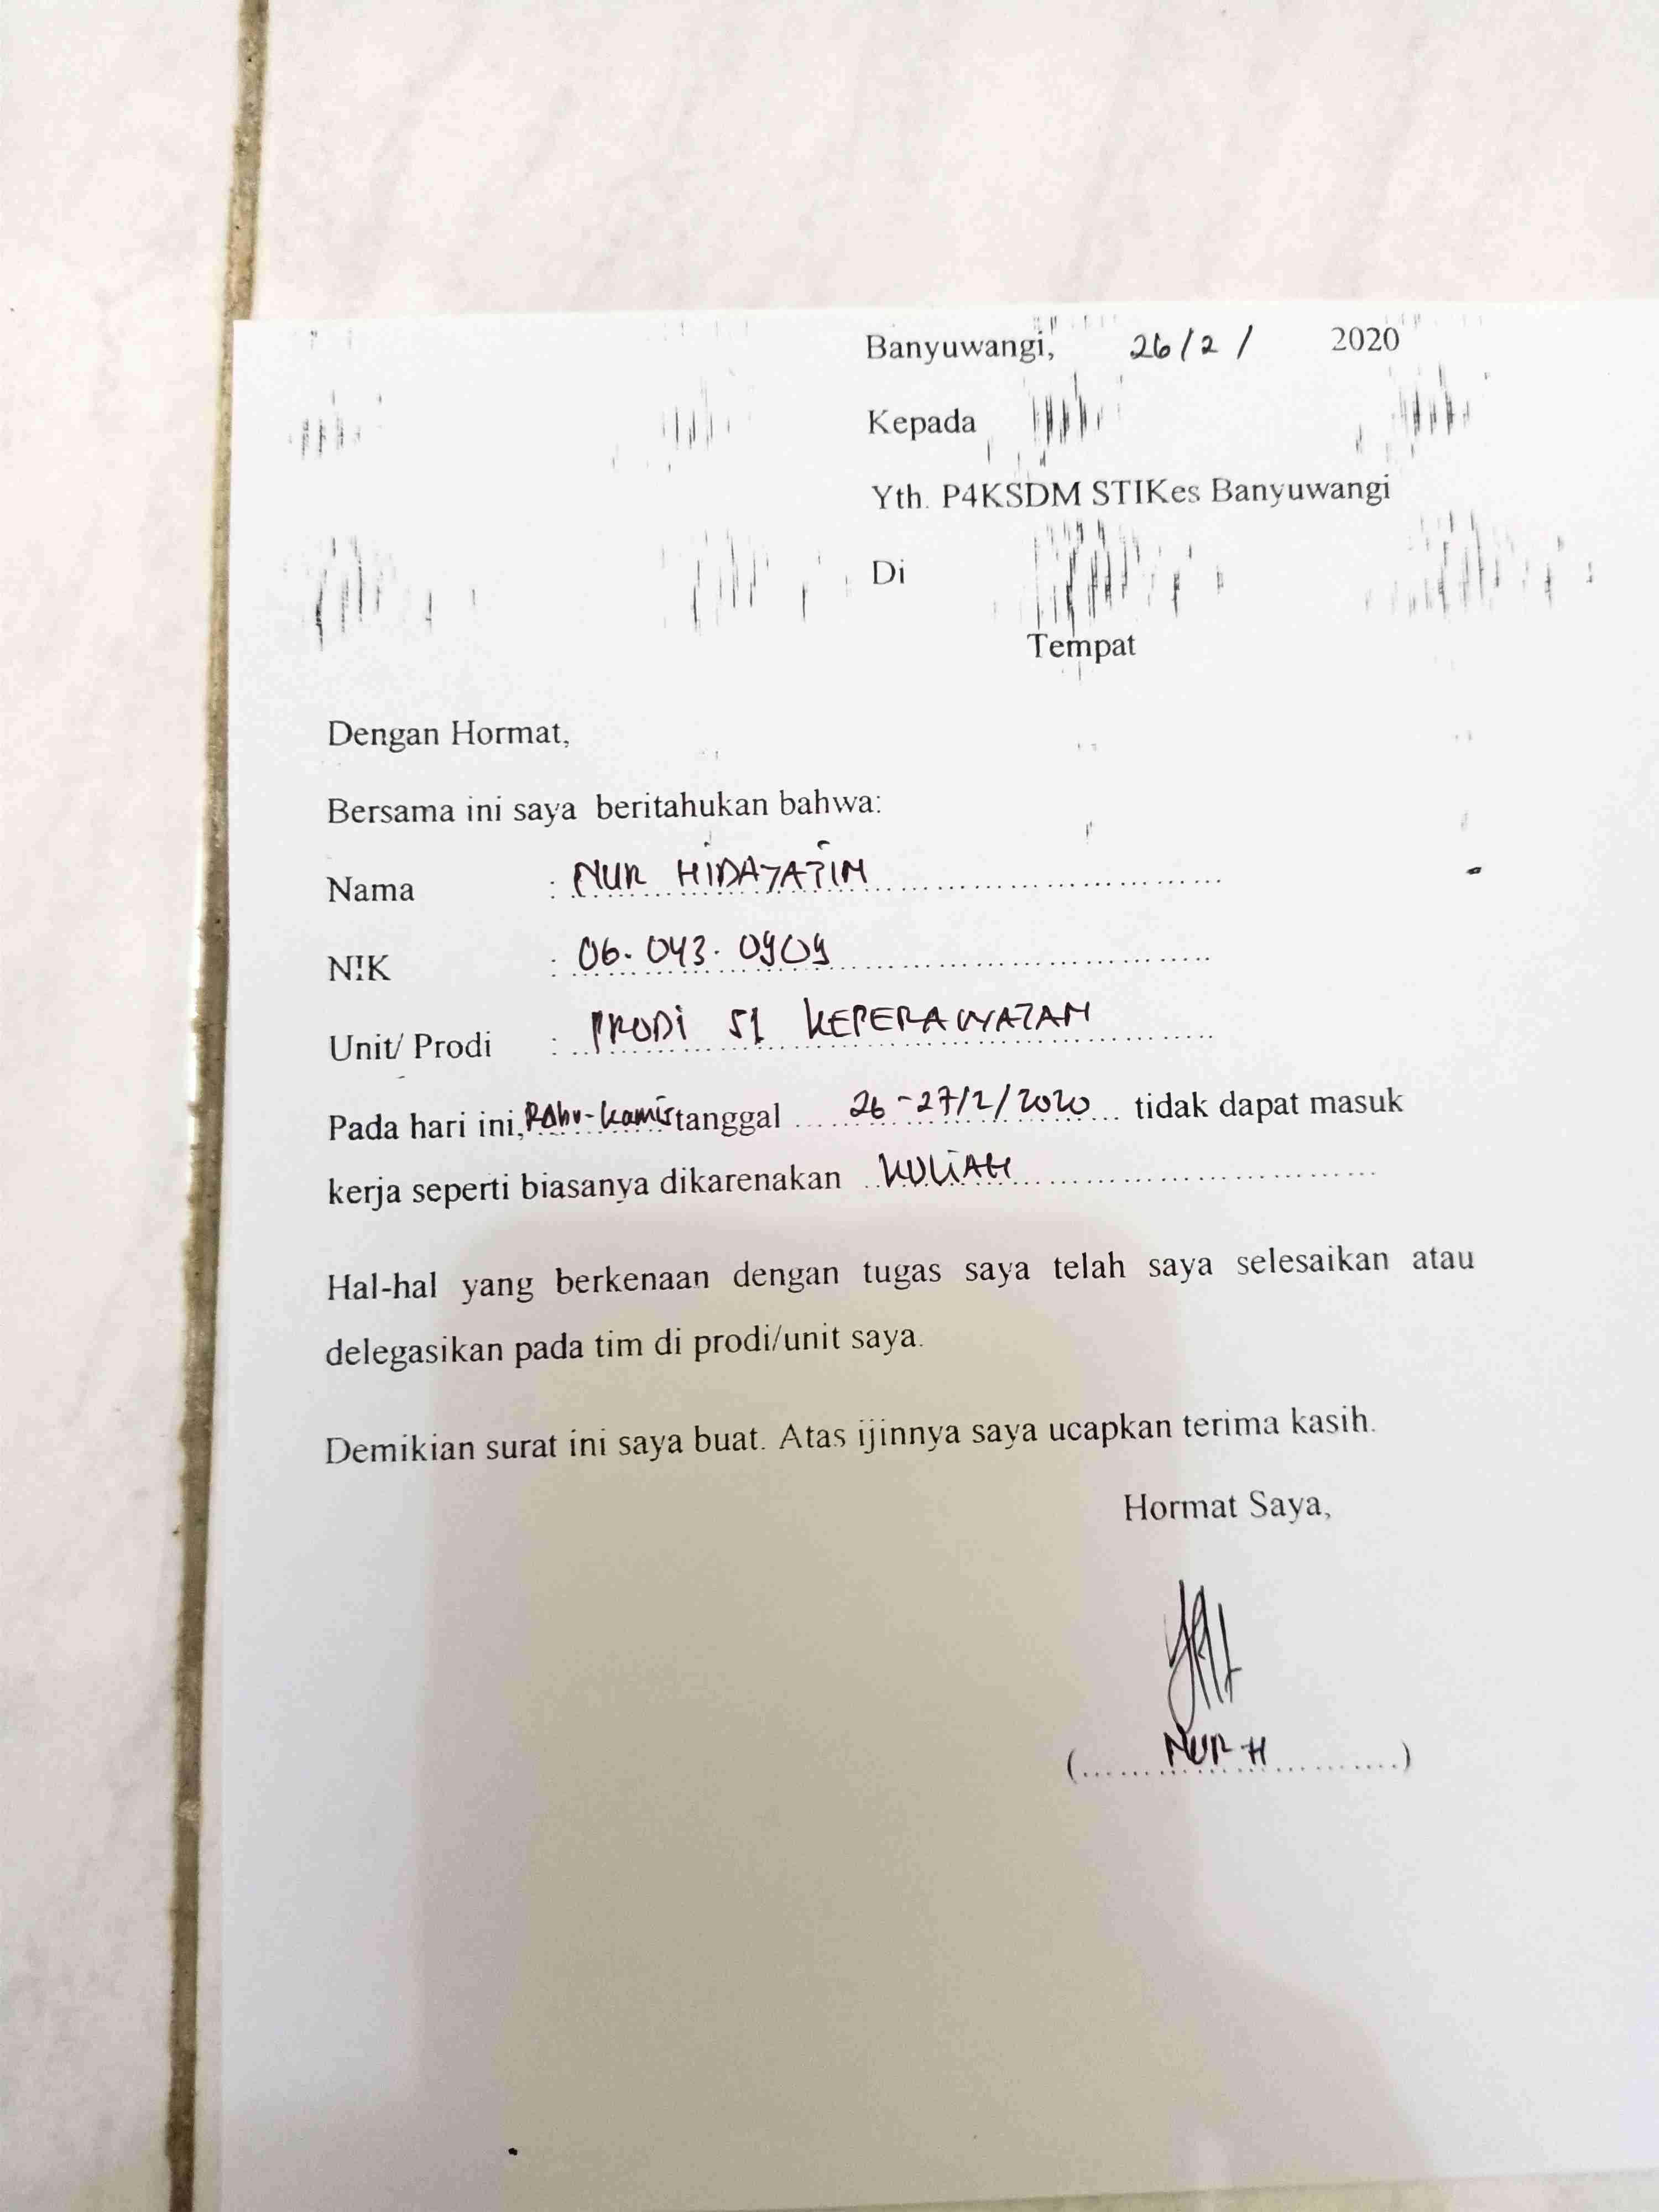 Banyuwangi, 26/2/ 2020
Kepada
Yth. P4KSDM STIKes Banyuwangi
Di
Tempat
Dengan Hormat,
Bersama ini saya beritahukan bahwa:
Nama : NUR HIDAYATIN
NIK : 06.043.0909
Unit/ Prodi : PRODI S1 KEPERAWATAN
Pada hari ini, Rabu-kamis tanggal 26-27/2/2020 tidak dapat masuk
kerja seperti biasanya dikarenakan KULIAH
Hal-hal yang berkenaan dengan tugas saya telah saya selesaikan atau
delegasikan pada tim di prodi/unit saya.
Demikian surat ini saya buat. Atas ijinnya saya ucapkan terima kasih.
Hormat Saya,
(......NUR H......)